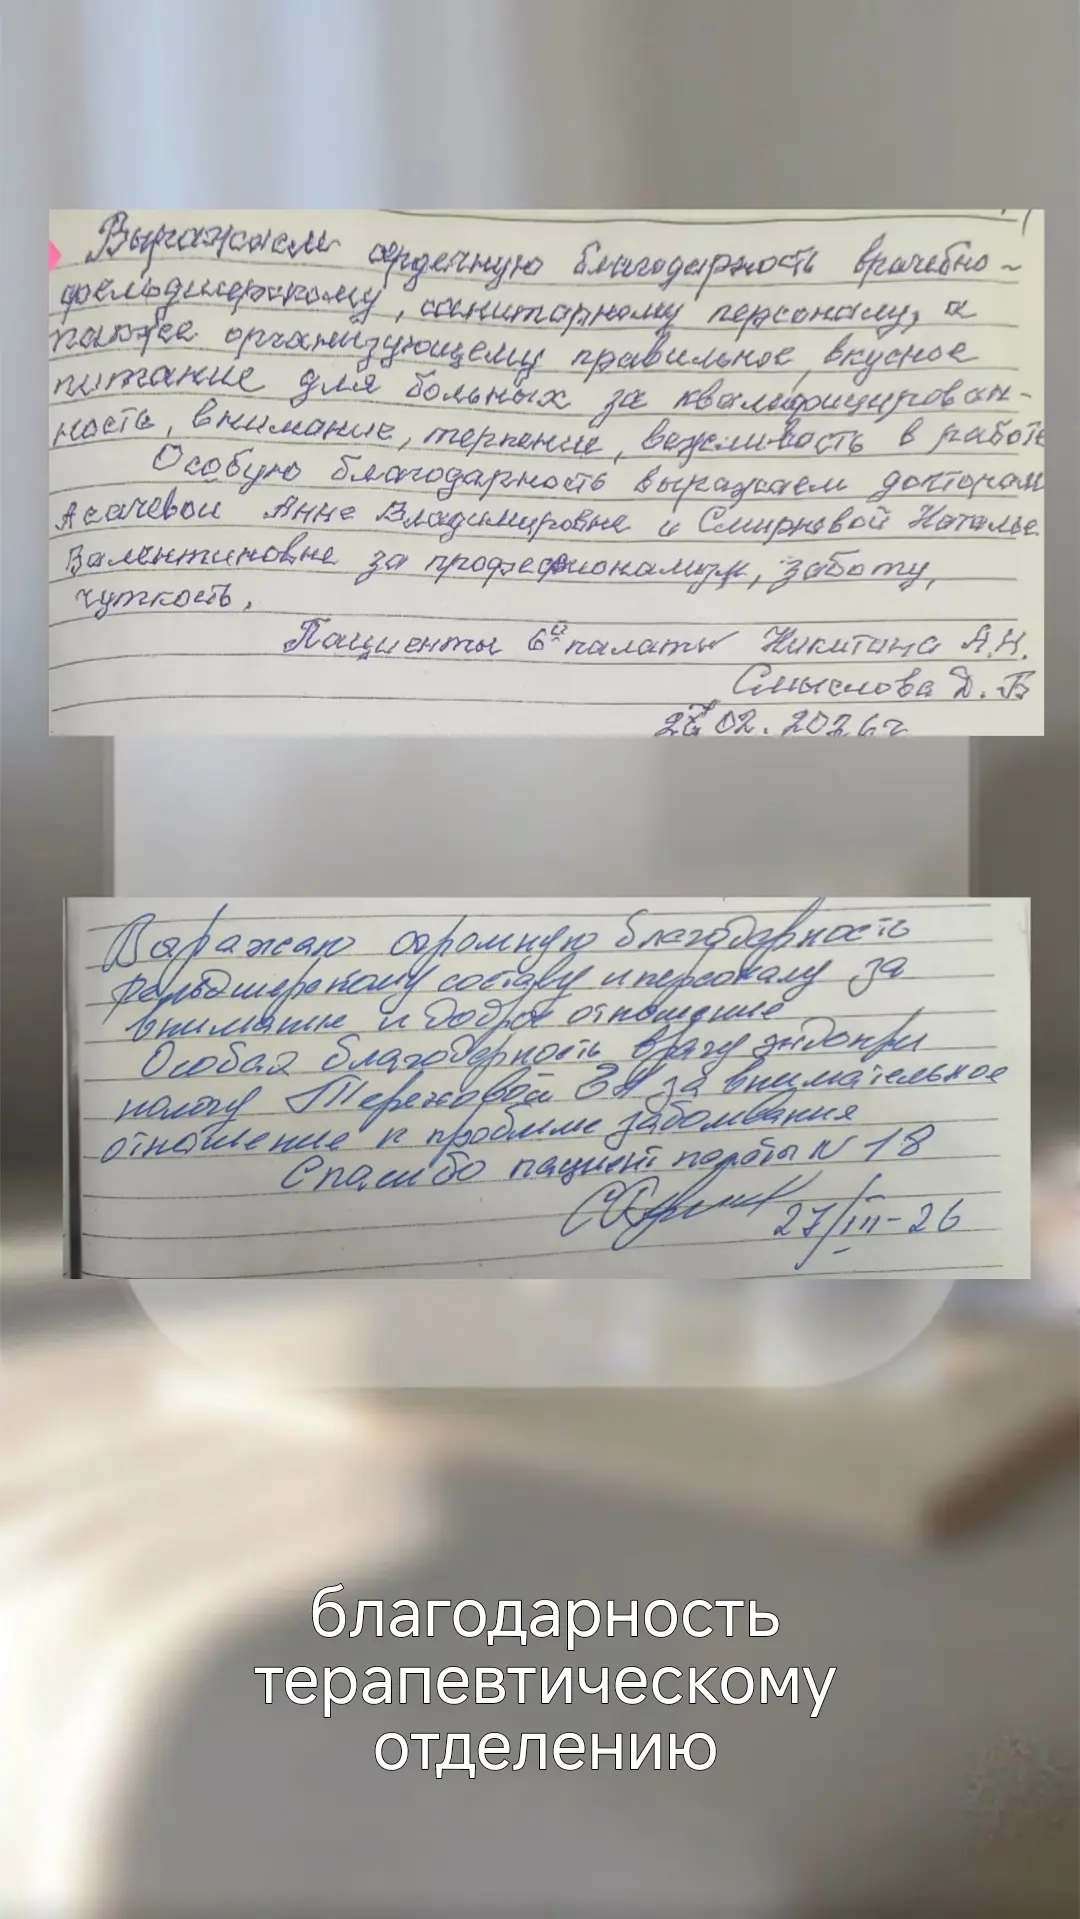 Выражаем сердечную благодарность врачебно-
фельдшерскому, санитарному персоналу, а
также организующему правильное, вкусное
питание для больных за квалифицирован-
ность, внимание, терпение, вежливость в работе
Особую благодарность выражаем докторам
Асачевой Анне Владимировне и Смирновой Наталье
Валентиновне за профессионализм, заботу,
чуткость.
Пациенты 6й палаты Никитина А.Н.
Смыслова Д. В
02. 2026г
Выражаю огромную благодарность
фельдшерскому составу и персоналу за
внимание и доброе отношение
Особая благодарность врачу эндокри
нологу за внимательное
отношение к проблеме заболевания
Спасибо пациент палаты N 18
27/III-26
благодарность
терапевтическому
отделению